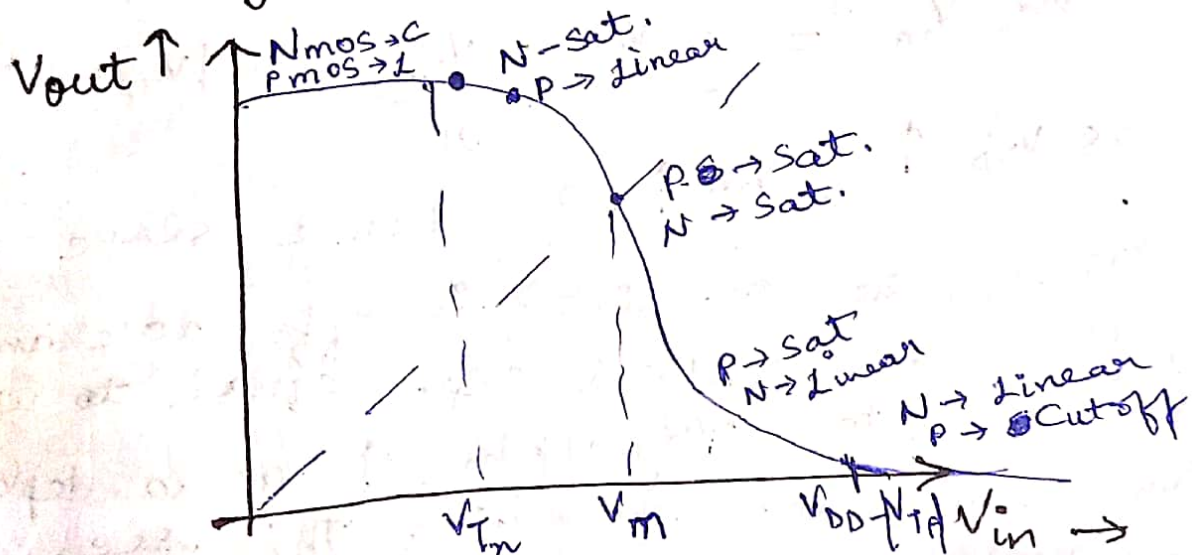 Vout ↑
Nmos → C
Pmos → L
N - Sat.
P → Linear
P → Sat.
N → Sat.
P → Sat
N → Linear
N → Linear
P → Cutoff
V_Tn
V_m
V_DD-|V_TP|
Vin →